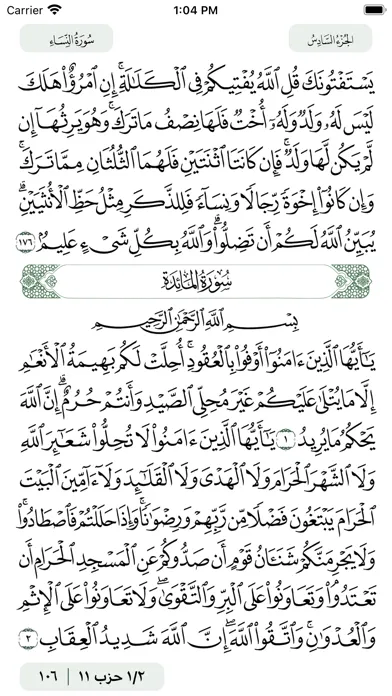 Carrier 1:04 PM
سُورَةُ النِّسَاءِ الجُزْءُ السَّادِسُ
يَسْتَفْتُونَكَ قُلِ ٱللَّهُ يُفْتِيكُمْ فِى ٱلْكَلَٰلَةِ ۚ إِنِ ٱمْرُؤٌا۟ هَلَكَ
لَيْسَ لَهُۥ وَلَدٌ وَلَهُۥٓ أُخْتٌ فَلَهَا نِصْفُ مَا تَرَكَ ۚ وَهُوَ يَرِثُهَآ إِن
لَّمْ يَكُن لَّهَا وَلَدٌ ۚ فَإِن كَانَتَا ٱثْنَتَيْنِ فَلَهُمَا ٱلثُّلُثَانِ مِمَّا تَرَكَ ۚ
وَإِن كَانُوٓا۟ إِخْوَةً رِّجَالًا وَنِسَآءً فَلِلذَّكَرِ مِثْلُ حَظِّ ٱلْأُنثَيَيْنِ ۗ
يُبَيِّنُ ٱللَّهُ لَكُمْ أَن تَضِلُّوا۟ ۗ وَٱللَّهُ بِكُلِّ شَىْءٍ عَلِيمٌۢ ١٧٦
سُورَةُ المَائِدَةِ
بِسْمِ ٱللَّهِ ٱلرَّحْمَٰنِ ٱلرَّحِيمِ
يَٰٓأَيُّهَا ٱلَّذِينَ ءَامَنُوٓا۟ أَوْفُوا۟ بِٱلْعُقُودِ ۚ أُحِلَّتْ لَكُم بَهِيمَةُ ٱلْأَنْعَٰمِ
إِلَّا مَا يُتْلَىٰ عَلَيْكُمْ غَيْرَ مُحِلِّى ٱلصَّيْدِ وَأَنتُمْ حُرُمٌ ۗ إِنَّ ٱللَّهَ
يَحْكُمُ مَا يُرِيدُ ١ يَٰٓأَيُّهَا ٱلَّذِينَ ءَامَنُوا۟ لَا تُحِلُّوا۟ شَعَٰٓئِرَ ٱللَّهِ
وَلَا ٱلشَّهْرَ ٱلْحَرَامَ وَلَا ٱلْهَدْىَ وَلَا ٱلْقَلَٰٓئِدَ وَلَآ ءَآمِّينَ ٱلْبَيْتَ
ٱلْحَرَامَ يَبْتَغُونَ فَضْلًا مِّن رَّبِّهِمْ وَرِضْوَٰنًا ۚ وَإِذَا حَلَلْتُمْ فَٱصْطَادُوا۟ ۚ
وَلَا يَجْرِمَنَّكُمْ شَنَـَٔانُ قَوْمٍ أَن صَدُّوكُمْ عَنِ ٱلْمَسْجِدِ ٱلْحَرَامِ أَن
تَعْتَدُوا۟ ۘ وَتَعَاوَنُوا۟ عَلَى ٱلْبِرِّ وَٱلتَّقْوَىٰ ۖ وَلَا تَعَاوَنُوا۟ عَلَى ٱلْإِثْمِ
وَٱلْعُدْوَٰنِ ۚ وَٱتَّقُوا۟ ٱللَّهَ ۖ إِنَّ ٱللَّهَ شَدِيدُ ٱلْعِقَابِ ٢
١/٢ حزب ١١ | ١٠٦